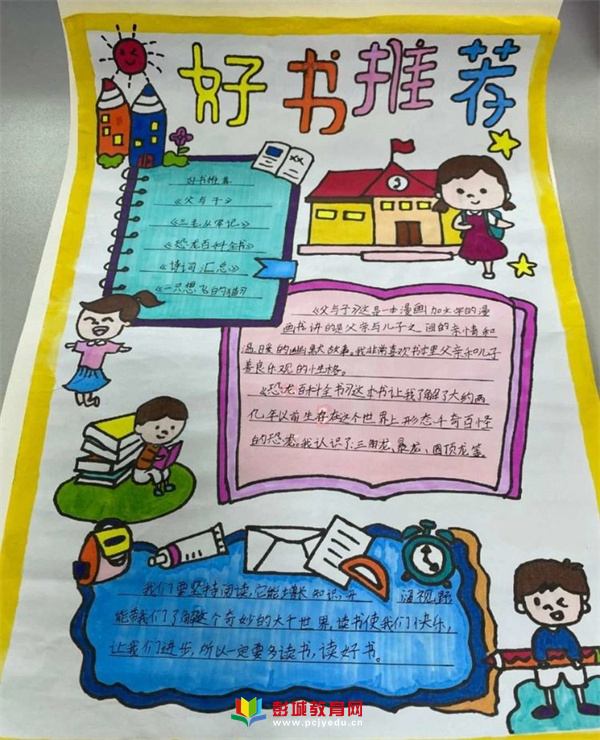 好书推荐
好书推荐
《父与子》
《三毛从军记》
《恐龙百科全书》
《诗词汇总》
《一只想飞的猫》
《父与子》这是一本漫画加文学的漫
画书讲的是父亲与儿子之间的亲情和
温暖的幽默故事。我非常喜欢书里父亲和儿子
善良乐观的性格。
《恐龙百科全书》这本书让我了解了大约两
亿年以前生存在这个世界上形态千奇百怪
的恐龙。我认识了:三角龙、暴龙、圆顶龙等
我们要坚持阅读,它能增长知识,开 阔视野
能带我们了解整个奇妙的大千世界,读书使我们快乐,
让我们进步,所以一定要多读书,读好书。
彭城教育网
www.pcjyedu.cn